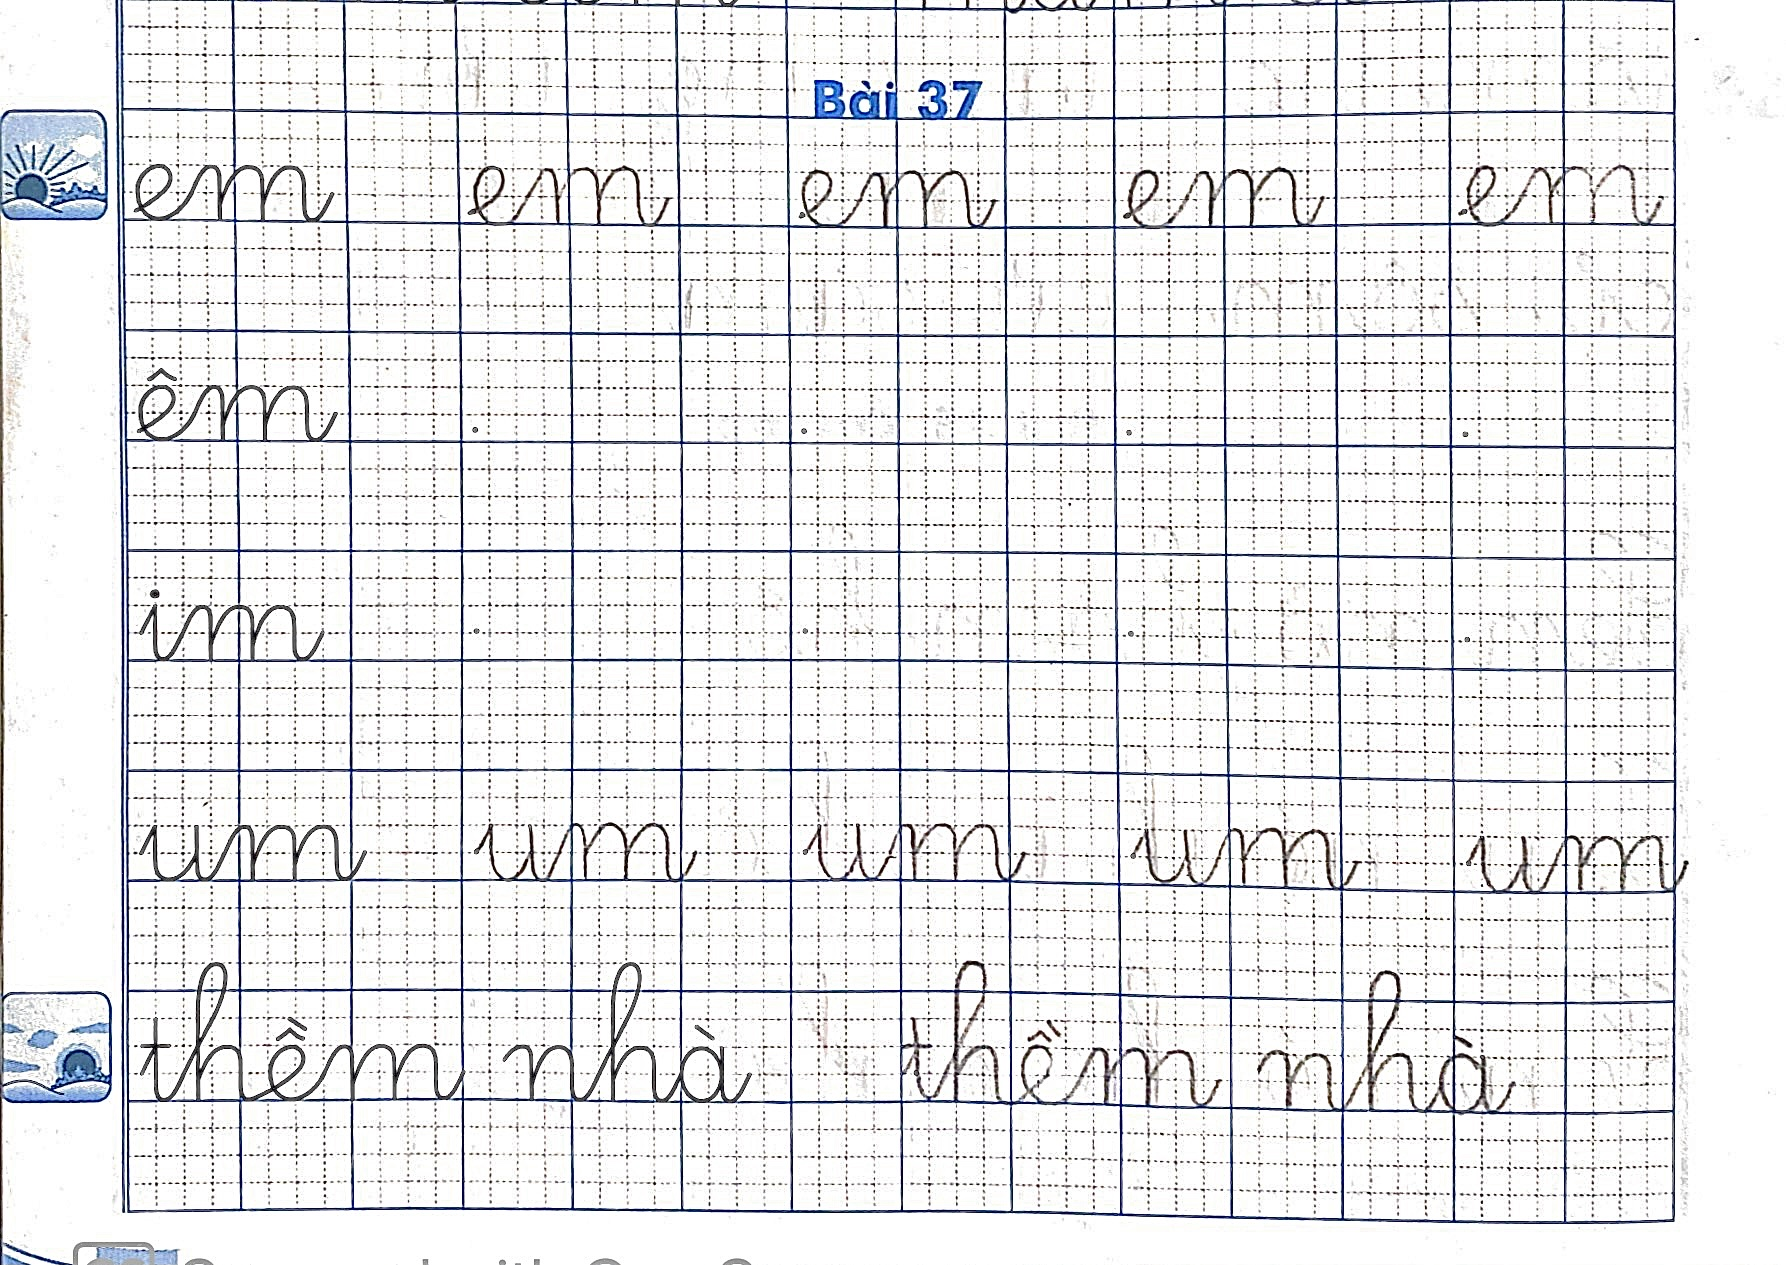 Bài 37
em em em em em
êm
im
um um um um um
thềm nhà thềm nhà